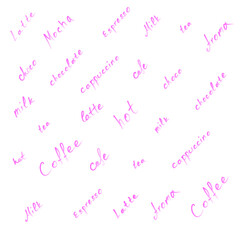 Latte Mocha Espresso Milk tea Aroma
choco chocolate cappuccino cafe choco chocolate
milk tea latte hot milk cappuccino
hot Coffee Cafe tea
Milk Espresso Latte Aroma Coffee